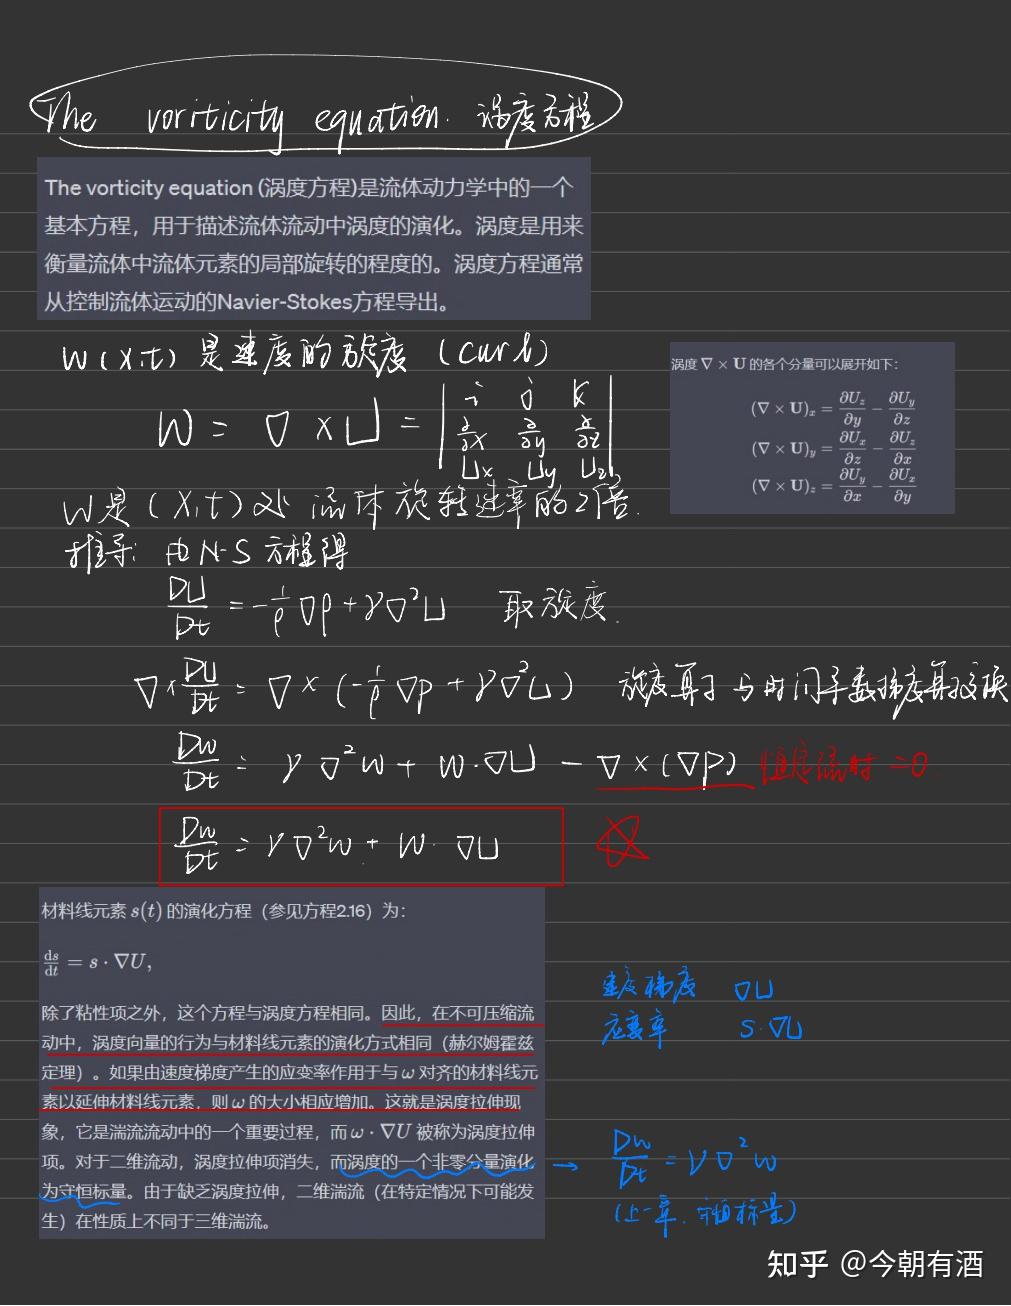 The voriticity equation. 涡度方程
The vorticity equation (涡度方程)是流体动力学中的一个
基本方程，用于描述流体流动中涡度的演化。涡度是用来
衡量流体中流体元素的局部旋转的程度的。涡度方程通常
从控制流体运动的Navier-Stokes方程导出。
W(X,t) 是速度的旋度 (curl)
W = ∇ × U = | i j k
∂/∂x ∂/∂y ∂/∂z
Ux Uy Uz |
涡度 ∇ × U 的各个分量可以展开如下：
(∇ × U)x = ∂Uz/∂y − ∂Uy/∂z
(∇ × U)y = ∂Ux/∂z − ∂Uz/∂x
(∇ × U)z = ∂Uy/∂x − ∂Ux/∂y
W是 (X,t) 处 流体旋转速率的2倍.
推导: 由N-S方程得
DU/Dt = -1/ρ ∇p + ν∇²U 取旋度.
∇×DU/Dt = ∇ × (-1/ρ ∇p + ν∇²U) 旋度算子与时间导数梯度算子交换
Dw/Dt = ν∇²w + w·∇U − ∇×(∇p) 恒定流时 =0
Dw/Dt = ν∇²w + w·∇U
材料线元素 s(t) 的演化方程（参见方程2.16）为：
ds/dt = s · ∇U,
除了粘性项之外，这个方程与涡度方程相同。因此，在不可压缩流
动中，涡度向量的行为与材料线元素的演化方式相同（赫尔姆霍兹
定理）。如果由速度梯度产生的应变率作用于与 ω 对齐的材料线元
素以延伸材料线元素，则 ω 的大小相应增加。这就是涡度拉伸现
象，它是湍流流动中的一个重要过程，而 ω · ∇U 被称为涡度拉伸
项。对于二维流动，涡度拉伸项消失，而涡度的一个非零分量演化
为守恒标量。由于缺乏涡度拉伸，二维湍流（在特定情况下可能发
生）在性质上不同于三维湍流。
速度梯度 ∇U
应变率 S·∇U
→ Dw/Dt = ν∇²w
(上一章. 守恒标量)
知乎 @今朝有酒